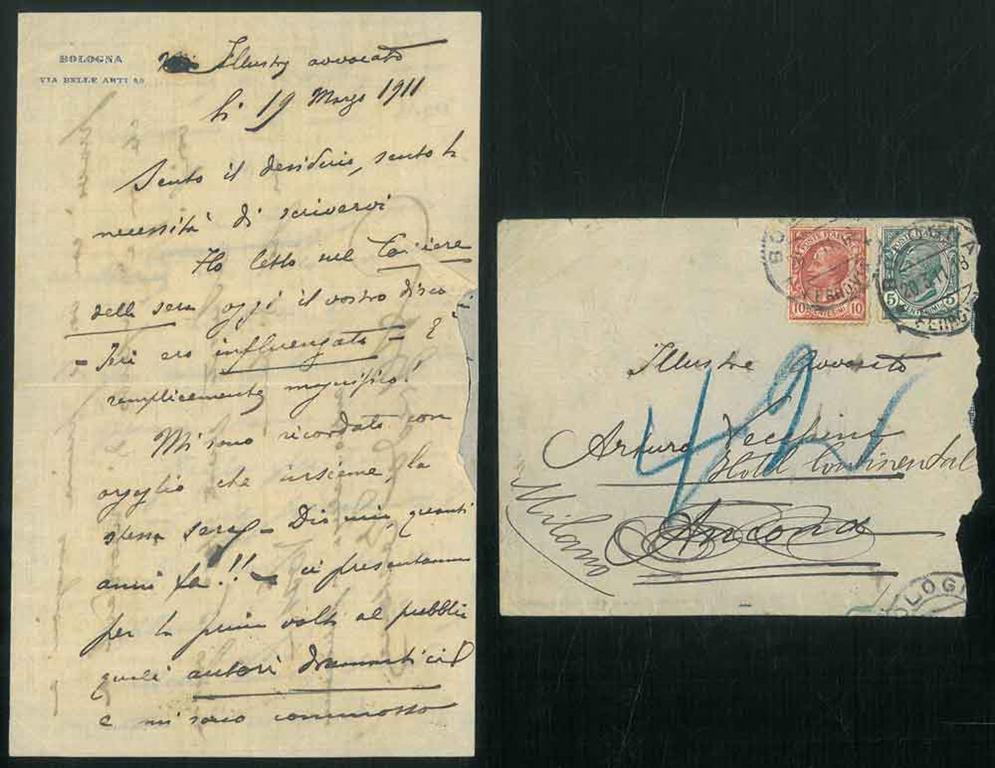 BOLOGNA
VIA BELLE ARTI
Illustre avvocato
li 19 Marzo 1911
Sento il desiderio, sento la
necessità di scrivervi
Ho letto nel Corriere
della sera oggi il vostro disco
- Ieri ero influenzato - È
semplicemente magnifico!
Mi sono ricordato con
orgoglio che insieme, la
stessa sera - Dio mio, quanti
anni fa!! - ci presentammo
per la prima volta al pubblico
quali autori drammatici
e mi sono commosso
BOLOGNA
20.3.11
POSTE ITALIANE
10 CENTESIMI 10
5 CENTESIMI 5
Illustre avvocato
Arturo Vecchini
Hotel Continental
Milano
Ancona
BOLOGN